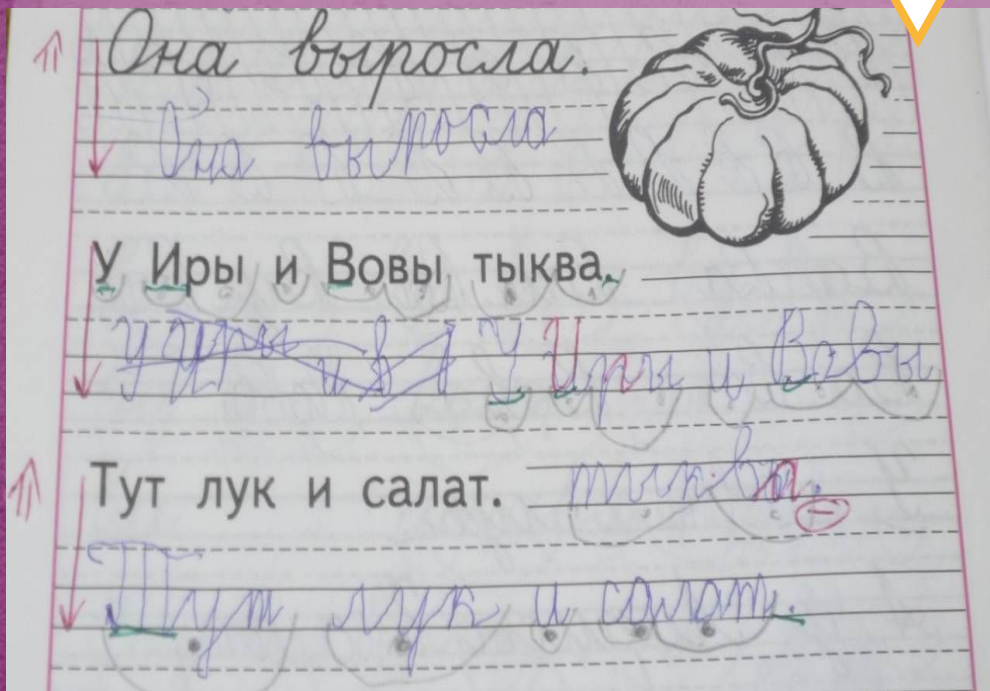 Она выросла.
Она выросла
У Иры и Вовы тыква.
У Иры и в У Иры и Вовы
Тут лук и салат. тыква.
Тут лук и салат.